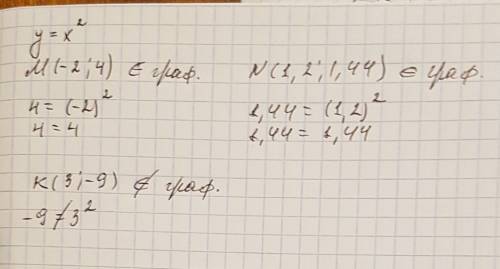 y = x²
M(-2; 4) ∈ граф.
4 = (-2)²
4 = 4
N(1,2; 1,44) ∈ граф.
1,44 = (1,2)²
1,44 = 1,44
K(3; -9) ∉ граф.
-9 ≠ 3²